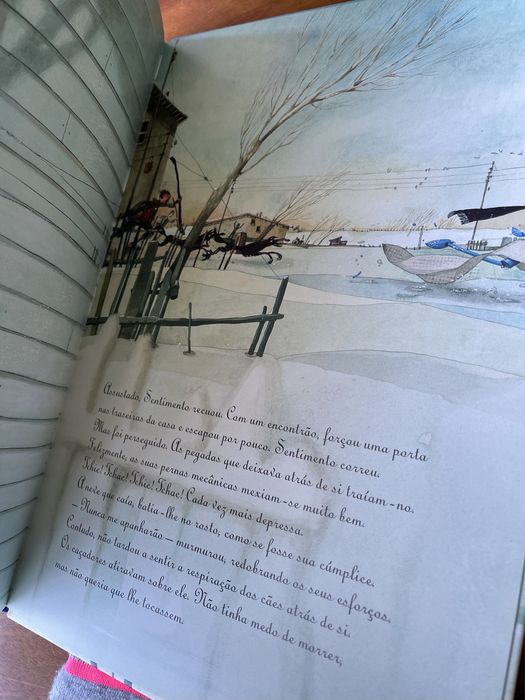 Assustado, Sentimento recuou. Com um encontrão, forçou uma porta
nas traseiras da casa e escapou por pouco. Sentimento correu.
Mas foi perseguido. As pegadas que deixava atrás de si traíam-no.
Felizmente, as suas pernas mecânicas mexiam-se muito bem.
Tchic! Tchac! Tchic! Tchac! Cada vez mais depressa.
A neve que caía, batia-lhe no rosto, como se fosse sua cúmplice.
– Nunca me apanharão – murmurou, redobrando os seus esforços.
Contudo, não tardou a sentir a respiração dos cães atrás de si.
Os caçadores atiravam sobre ele. Não tinha medo de morrer,
mas não queria que lhe tocassem.